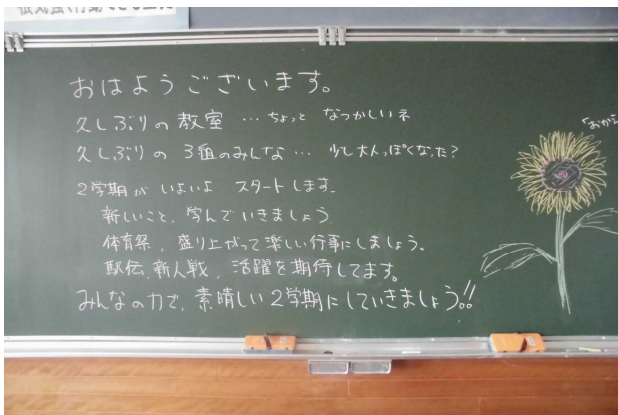 おはようございます。
久しぶりの教室…ちょっと なつかしいネ
久しぶりの 3組のみんな… 少し大人っぽくなった?
2学期が いよいよ スタートします。
新しいこと、学んでいきましょう
体育祭、盛り上がって楽しい行事にしましょう。
駅伝、新人戦、活躍を期待してます。
みんなの力で、素晴らしい2学期にしていきましょう!!
「おかえ